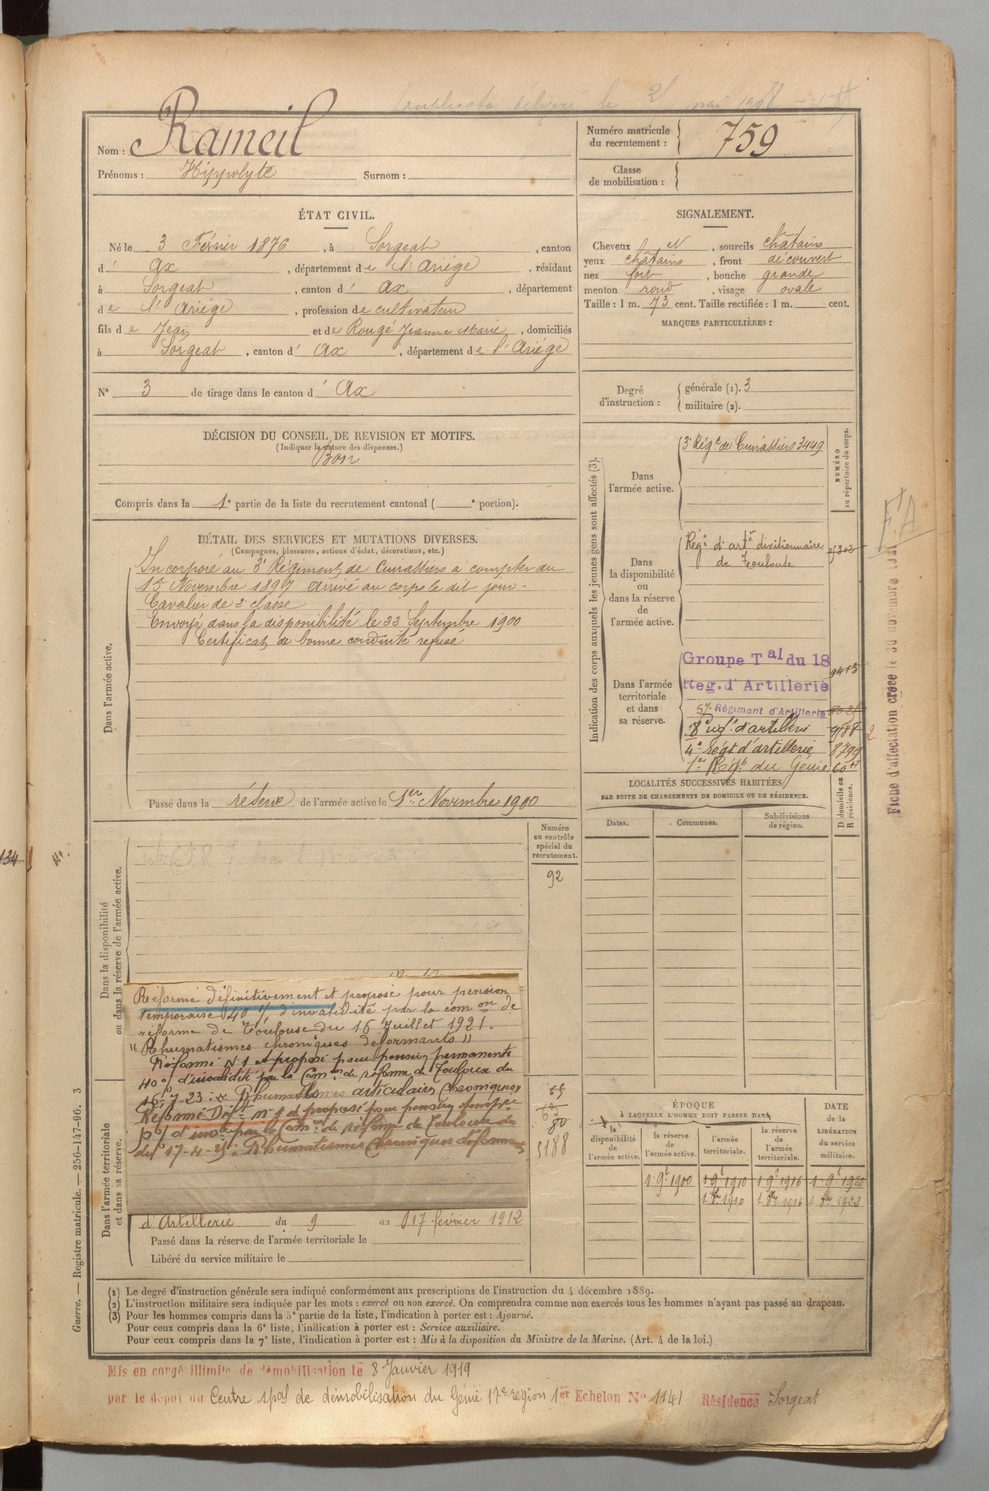 Duplicata délivré le 21 mai 1908
Nom : Rameil
Prénoms : Hippolyte Surnom :
Numéro matricule du recrutement : 759
Classe de mobilisation :
ÉTAT CIVIL.
Né le 3 Février 1876, à Sorgeat, canton
d' Ax, département de l'Ariège, résidant
à Sorgeat, canton d' Ax, département
de l'Ariège, profession de cultivateur
fils de Jean et de Rougé Jeanne Marie, domiciliés
à Sorgeat, canton d' Ax, département de l'Ariège
N° 3 de tirage dans le canton d' Ax
SIGNALEMENT.
Cheveux N, sourcils châtains
yeux châtains, front découvert
nez fort, bouche grande
menton rond, visage ovale
Taille : 1 m. 73 cent. Taille rectifiée : 1 m. cent.
MARQUES PARTICULIÈRES :
Degré d'instruction : générale (1). 3
militaire (2).
DÉCISION DU CONSEIL DE REVISION ET MOTIFS.
(Indiquer la nature des dispenses.)
Bon
Compris dans la 1e partie de la liste du recrutement cantonal ( e portion).
DÉTAIL DES SERVICES ET MUTATIONS DIVERSES.
(Campagnes, blessures, actions d'éclat, décorations, etc.)
Dans l'armée active.
Incorporé au 3e Régiment de Cuirassiers à compter du
15 Novembre 1897 Arrivé au corps le dit jour.
Cavalier de 2e classe
Envoyé dans la disponibilité le 22 Septembre 1900
Certificat de bonne conduite refusé
Passé dans la réserve de l'armée active le 1er Novembre 1900
Indication des corps auxquels les jeunes gens sont affectés (3).
NUMÉRO au répertoire du corps.
Dans l'armée active.
3e Régt de Cuirassiers 3449
Dans la disponibilité ou dans la réserve de l'armée active.
Régt d'artie divisionnaire
de Toulouse
Dans l'armée territoriale et dans sa réserve.
Groupe Tal du 18
Reg. d'Artillerie
57 Régiment d'Artillerie
18e régt d'artillerie
4e régt d'artillerie 8799
1er Régt du Génie
F A
Fiche d'affectation créée le 30 novembre
LOCALITÉS SUCCESSIVES HABITÉES
PAR SUITE DE CHANGEMENTS DE DOMICILE OU DE RÉSIDENCE.
Dates. Communes. Subdivisions de région. D domicile ou R résidence.
Numéro au contrôle spécial du recrutement.
92
Dans la disponibilité ou dans la réserve de l'armée active.
Réformé définitivement et proposé pour pension
temporaire 40 % d'invalidité par la comon de
réforme de Toulouse du 16 Juillet 1921.
"Rhumatismes chroniques déformants"
Réformé N°1 et proposé pour pension permanente
40 % d'invalidité par la Comon de réforme de Toulouse du
16-7-23 : Rhumatismes articulaires chroniques
Réformé Déft n°1 et proposé pour pension
par la Comon de réforme de Toulouse du
17-4-25. Rhumatismes chroniques déformants
80
5188
Dans l'armée territoriale et dans sa réserve.
d'Artillerie du 9 au 17 février 1912
Passé dans la réserve de l'armée territoriale le
Libéré du service militaire le
ÉPOQUE
À LAQUELLE L'HOMME DOIT PASSER DANS
la disponibilité de l'armée active. la réserve de l'armée active. l'armée territoriale. la réserve de l'armée territoriale.
DATE de la LIBÉRATION du service militaire.
1 9e 1900 1 9e 1910 1 9e 1916
Guerre. — Registre matricule. — 256-147-96. 3
(1) Le degré d'instruction générale sera indiqué conformément aux prescriptions de l'instruction du 4 décembre 1889.
(2) L'instruction militaire sera indiquée par les mots : exercé ou non exercé. On comprendra comme non exercés tous les hommes n'ayant pas passé au drapeau.
(3) Pour les hommes compris dans la 5e partie de la liste, l'indication à porter est : Ajourné.
Pour ceux compris dans la 6e liste, l'indication à porter est : Service auxiliaire.
Pour ceux compris dans la 7e liste, l'indication à porter est : Mis à la disposition du Ministre de la Marine. (Art. 4 de la loi.)
Mis en congé illimité de démobilisation le 8 Janvier 1919
par le dépôt du Centre spal de démobilisation du Génie 17e région 1er Echelon N° 1141 Résidence Sorgeat